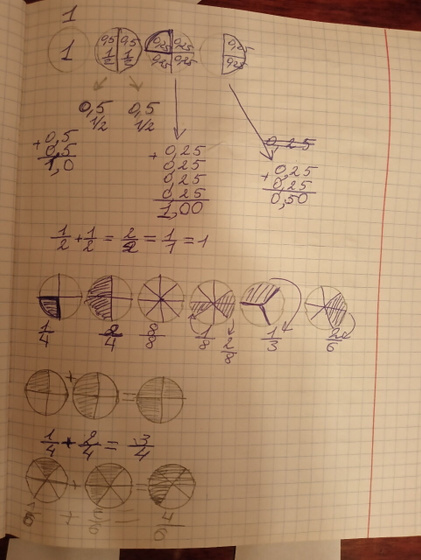 1
1 0,5 0,5 0,25 0,25 0,25
1/2 1/2 0,25 0,25 0,25
0,5 0,5
1/2 1/2
+ 0,5 + 0,25 0,25
0,5 0,25 + 0,25
1,0 0,25 0,25
0,25 0,50
1,00
1/2 + 1/2 = 2/2 = 1/1 = 1
1/4 2/4 8/8 1/8 2/8 1/3 2/6
+ =
1/4 + 2/4 = 3/4
+ =
+ =